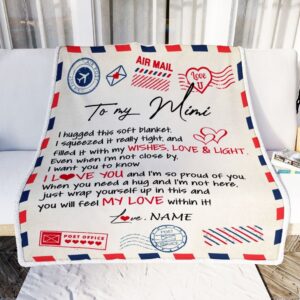 AIR MAIL
Love U
To my Mimi
I hugged this soft blanket.
I squeezed it really tight, and
filled it with my WISHES, LOVE & LIGHT.
Even when i'm not close by,
I want you to know
I LOVE YOU and I'm so proud of you.
When you need a hug and I'm not here,
just wrap yourself up in this and
you will feel MY LOVE within it!
Love, NAME
POST OFFICE